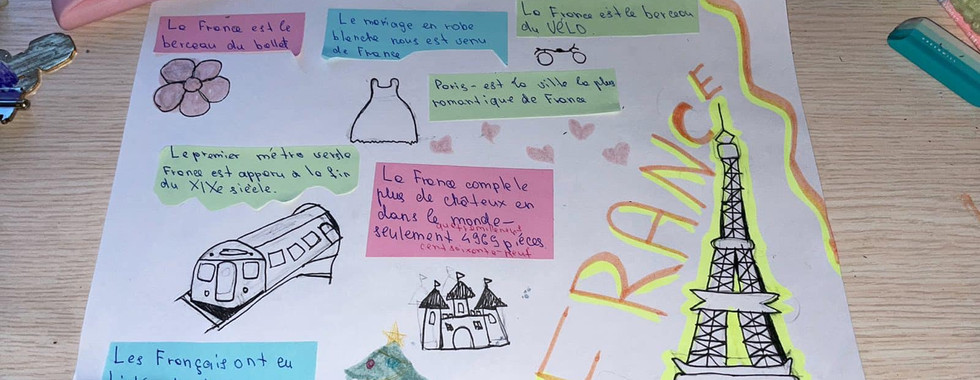 La France est le
berceau du ballet
Le mariage en robe
blanche nous est venu
de France
La France est le berceau
du VÉLO
Paris - est la ville la plus
romantique de France
Le premier métro versle
France est apparu à la fin
du XIXe siècle.
La France complele
plus de châteux en
dans le monde-
quatre mille neuf
seulement 4969 pièces
cent soixante-neuf
FRANCE
Les Français ont eu